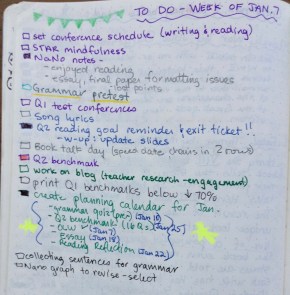 TO DO - WEEK OF JAN. 7
set conference schedule (writing & reading)
STAR mindfulness
NaNo notes -
- enjoyed reading
- essay, final paper formatting issues
- lost points
Grammar pretest
Q1 test conferences
Song lyrics
Q2 reading goal reminder & exit ticket!!
- w-up: update slides
Book talk day (chairs in 2 rows)
Q2 benchmark
work on blog (teacher research - engagement)
print Q1 benchmarks below ↓ 70%
create planning calendar for Jan.
- grammar quiz (Jan 18)
- Q2 benchmark (16 Q's, Jan 25)
- OLW ✓ (Jan 7)
- Essay (Jan 18)
- Reading Reflection (Jan 22)
collecting sentences for grammar
Nano graph to revise - select